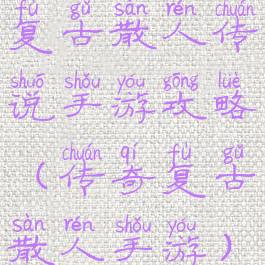 fù gǔ sǎn rén chuán
复古散人传
shuō shǒu yóu gōng lüè
说手游攻略
chuán qí fù gǔ
（传奇复古
sàn rén shǒu yóu
散人手游）